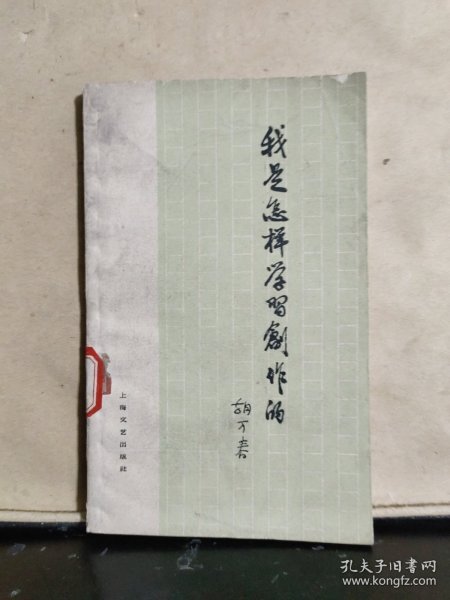 我是怎样学習創作的
胡万春
上海文艺出版社
孔夫子旧书网
www.kongfz.com